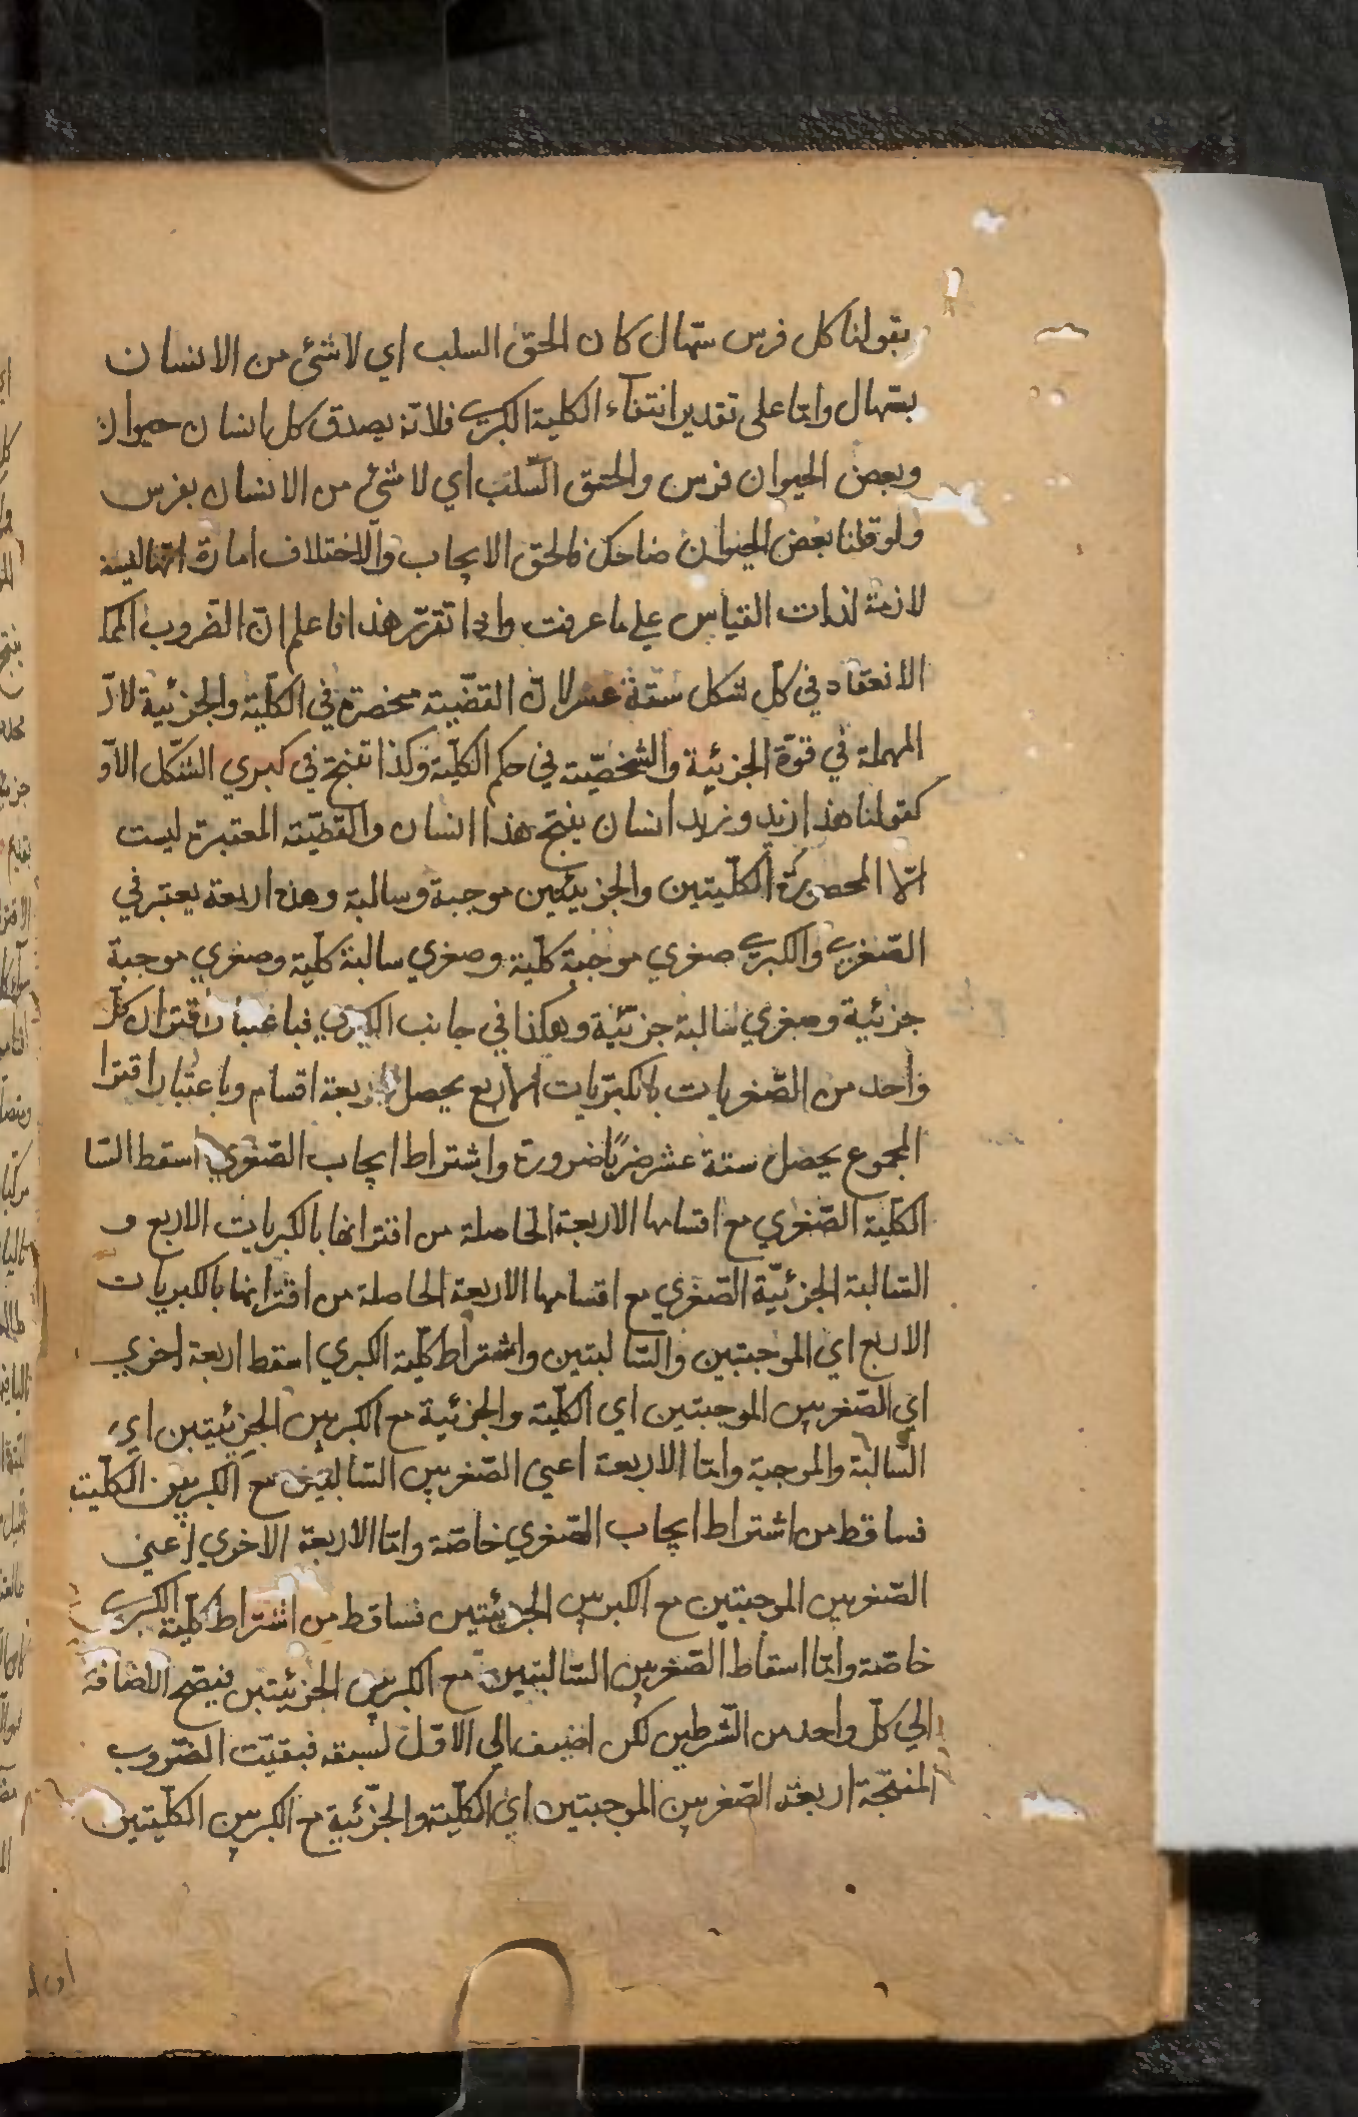 بقولنا كل فرس صهال كان الحق السلب اي لا شئ من الانسان
بصهال واما على تقدير انتفاء الكلية الكبرى فلانه يصدق كل انسان حيوان
وبعض الحيوان فرس والحق السلب اي لا شئ من الانسان بفرس
ولو قلنا بعض الحيوان ضاحك فالحق الايجاب والاختلاف امارة انها ليست
لازمة لذات القياس علي ما عرفت واذا تقرر هذا فاعلم ان الضروب الممكنة
الانعقاد في كل شكل ستة عشر لان القضية منحصرة في الكلية والجزئية لان
المهملة في قوة الجزئية والشخصية في حكم الكلية وكذا تنتج في كبري الشكل الاول
كقولنا هذا زيد وزيد انسان ينتج هذا انسان والقضية المعتبرة ليست
الا المحصورة الكليتين والجزئيتين موجبة وسالبة وهذه اربعة يعتبر في
الصغرى والكبرى صغري موجبة كلية وصغري سالبة كلية وصغري موجبة
جزئية وصغري سالبة جزئية وهكذا في جانب الكبري فباعتبار اقتران كل
واحد من الصغريات بالكبريات الاربع يحصل اربعة اقسام وباعتبار اقترا
المجموع يحصل ستة عشر ضربا ضرورة واشتراط ايجاب الصغري اسقط السا
الكلية الصغري مع اقسامها الاربعة الحاصلة من اقترانها بالكبريات الاربع و
السالبة الجزئية الصغري مع اقسامها الاربعة الحاصلة من اقترانها بالكبريات
الاربع اي الموجبتين والسالبتين واشتراط كلية الكبري اسقط اربعة اخري
اي الصغريين الموجبتين اي الكلية والجزئية مع الكبريين الجزئيتين اي
السالبة والموجبة واما الاربعة اعني الصغريين السالبتين مع الكبريين الكليتين
فساقط من اشتراط ايجاب الصغري خاصة واما الاربعة الاخري اعني
الصغريين الموجبتين مع الكبريين الجزئيتين فساقط من اشتراط كلية الكبرى
خاصة واما اسقاط الصغريين السالبتين مع الكبريين الجزئيتين فيصح اللضافة
الي كل واحد من الشرطين لكن اضيف الي الاول لسبقه فبقيت الضروب
المنتجة اربعة الصغريين الموجبتين اي الكلية والجزئية مع الكبريين الكليتين